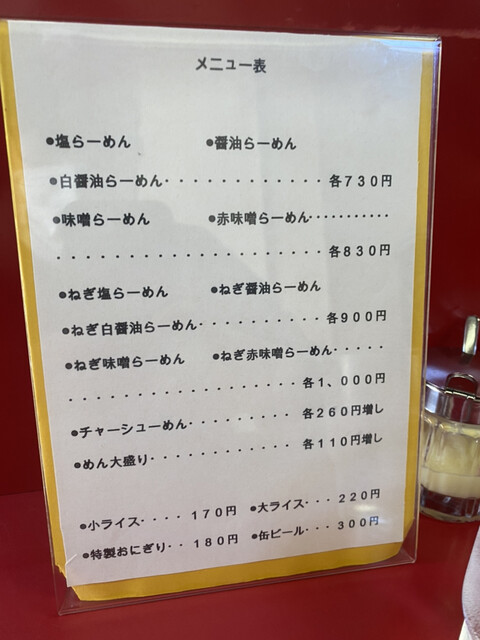 メニュー表
●塩らーめん ●醤油らーめん
●白醤油らーめん・・・・・・・・・・・・各７３０円
●味噌らーめん ●赤味噌らーめん・・・・・・・・・・・
・・・・・・・・・・・・・・・・・・・・各８３０円
●ねぎ塩らーめん ●ねぎ醤油らーめん
●ねぎ白醤油らーめん・・・・・・・・・・各９００円
●ねぎ味噌らーめん ●ねぎ赤味噌らーめん・・・・・
・・・・・・・・・・・・・・・・・・各１、０００円
●チャーシューめん・・・・・・・・・・各２６０円増し
●めん大盛り・・・・・・・・・・・・・各１１０円増し
●小ライス・・・・１７０円 ●大ライス・・・２２０円
●特製おにぎり・・１８０円 ●缶ビール・・・３００円